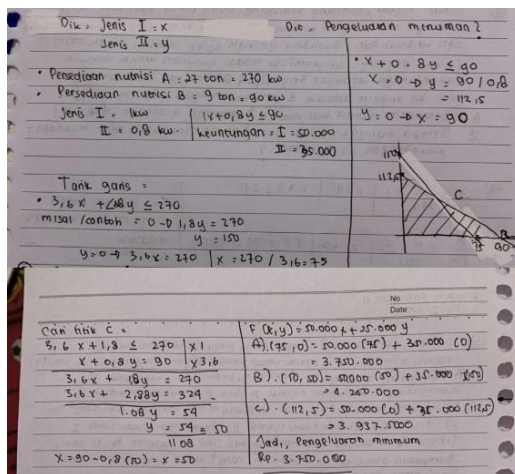 Dik : Jenis I = x
Jenis II = y
• Persediaan nutrisi A = 27 ton = 270 kw
• Persediaan nutrisi B = 9 ton = 90 kw
Jenis I. 1kw
II = 0,8 kw.
1x+0,8y ≤ 90
keuntungan = I = 50.000
II = 35.000
Tarik garis =
• 3,6x + 1,8y ≤ 270
misal /contoh = 0 → 1,8y = 270
y = 150
y = 0 → 3,6x = 270 | x = 270 / 3,6 = 75
Dit. Pengeluaran menuman?
• x + 0,8y ≤ 90
x = 0 → y = 90 / 0,8
= 112,5
y = 0 → x = 90
150
112,5
C
75 90
No
Date
Cari titik C =
3,6 x + 1,8 ≤ 270 | x1
x + 0,8y = 90 | x3,6
3,6x + 18y = 270
3,6x + 2,88y = 324 -
1.08 y = 54
y = 54 = 50
1108
x = 90 - 0,8 (50) = x = 50
F (x,y) = 50.000 x + 35.000 y
A). (75,0) = 50.000 (75) + 35.000 (0)
= 3.750.000
B). (50,50) = 50000 (50) + 35.000 (50)
= 4.250.000
C). (112,5) = 50.000 (0) + 35.000 (112,5)
= 3.937.5000
Jadi, Pengeluaran minimum
Rp. 3.750.000